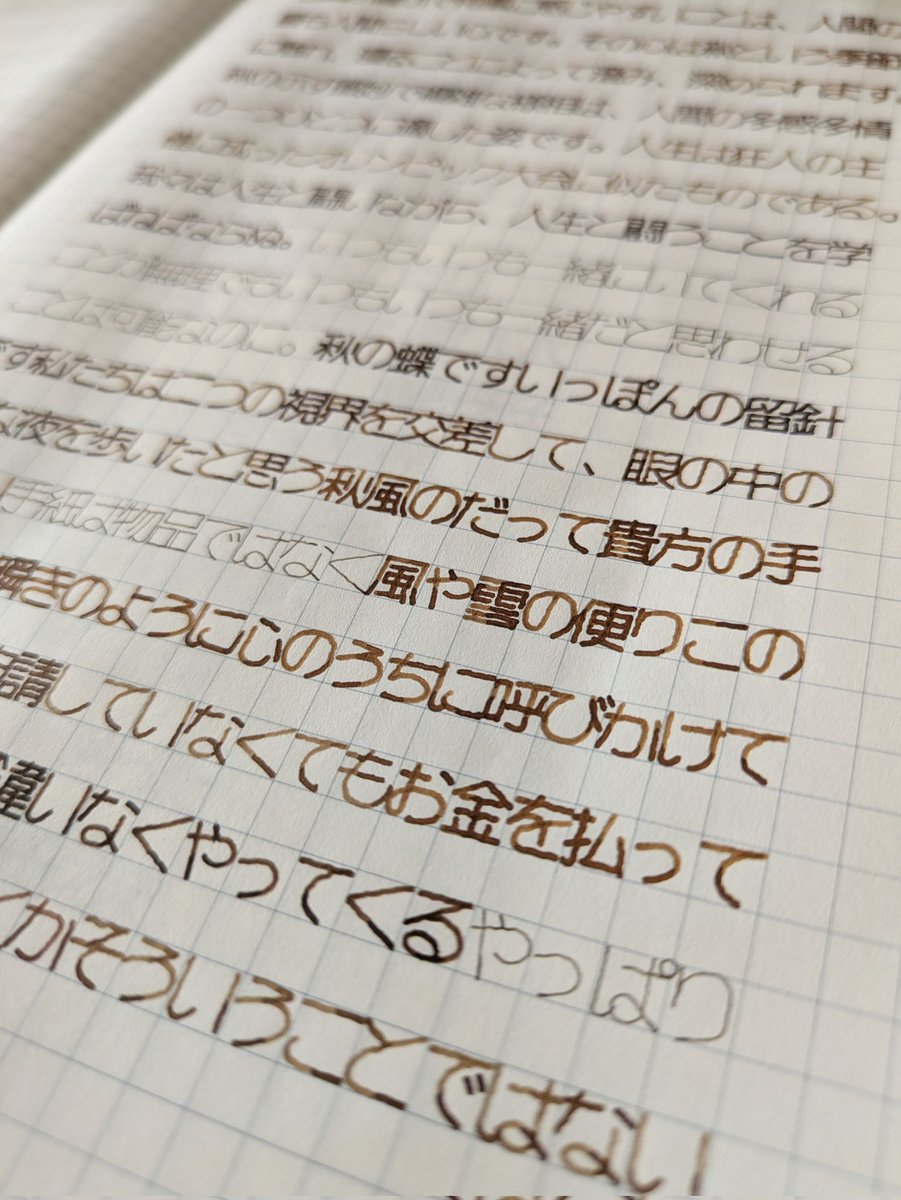 とは、人間の
です。その心は秋という季節
によって澄み、深められます。
は、人間の多感多情
の一つひとつに適した姿です。人生は狂人の主
催に成ったオリンピック大会に似たものである。
我々は人生と闘いながら、人生と闘うことを学
ばねばならぬ。いつもいつも一緒にいてくれる
ことが無理でもいつもいつも一緒だと思わせる
ことは可能なのに。秋の蝶ですいっぽんの留針
です私たちは二つの視界を交差して、眼の中の
な夜を歩いたと思う秋風のだって貴方の手
手紙は物品ではなく風や雪の便りこの
瞬きのように心のうちに呼びかけて
請していなくてもお金を払って
違いなくやってくるやっぱり
かそういうことではない